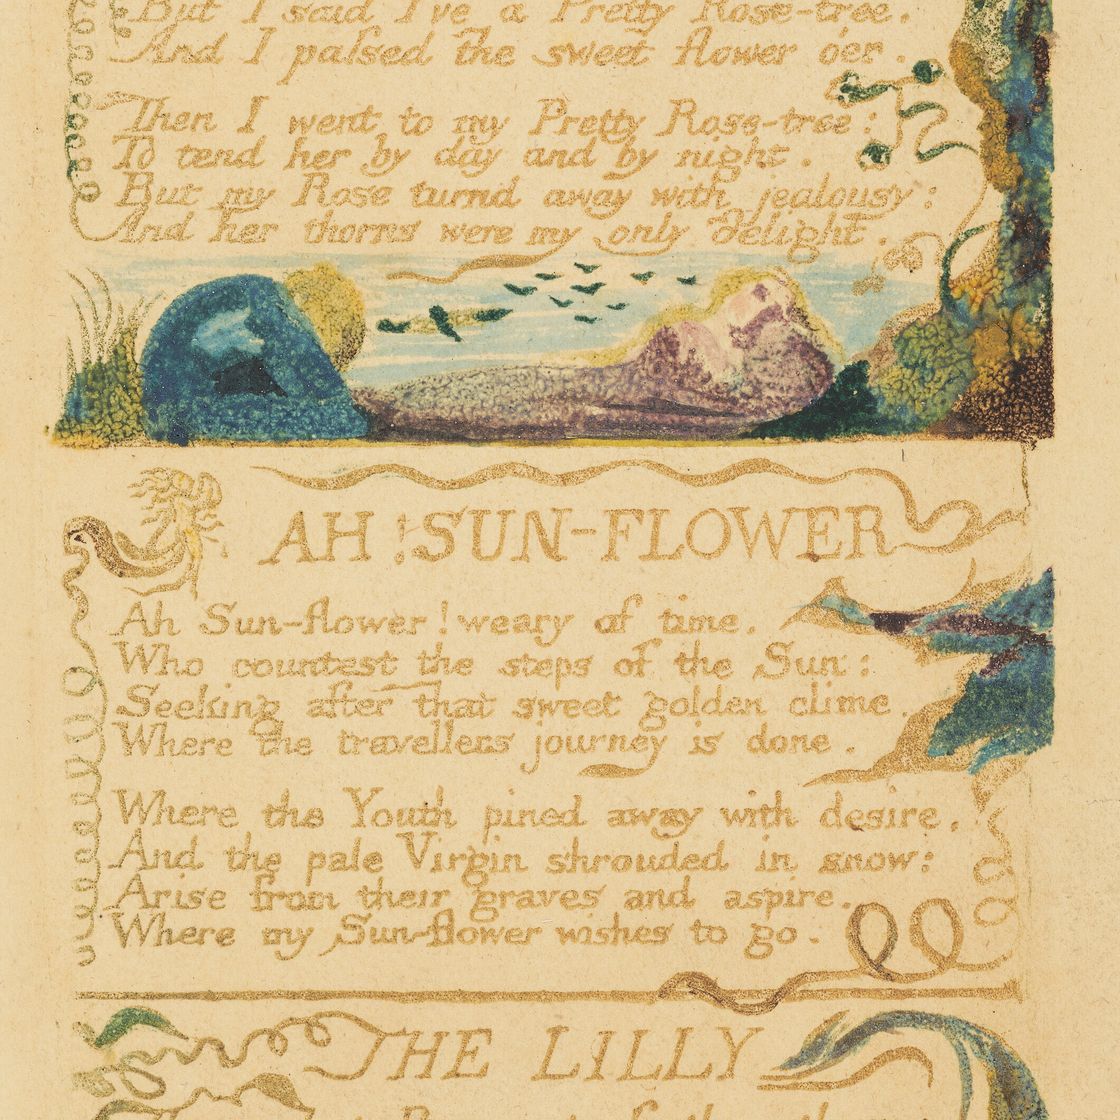 But I said I've a Pretty Rose-tree.
And I passed the sweet flower o'er.
Then I went to my Pretty Rose-tree:
To tend her by day and by night.
But my Rose turnd away with jealousy:
And her thorns were my only delight.
AH! SUN-FLOWER
Ah Sun-flower! weary of time.
Who countest the steps of the Sun:
Seeking after that sweet golden clime.
Where the travellers journey is done.
Where the Youth pined away with desire.
And the pale Virgin shrouded in snow:
Arise from their graves and aspire.
Where my Sun-flower wishes to go.
THE LILLY